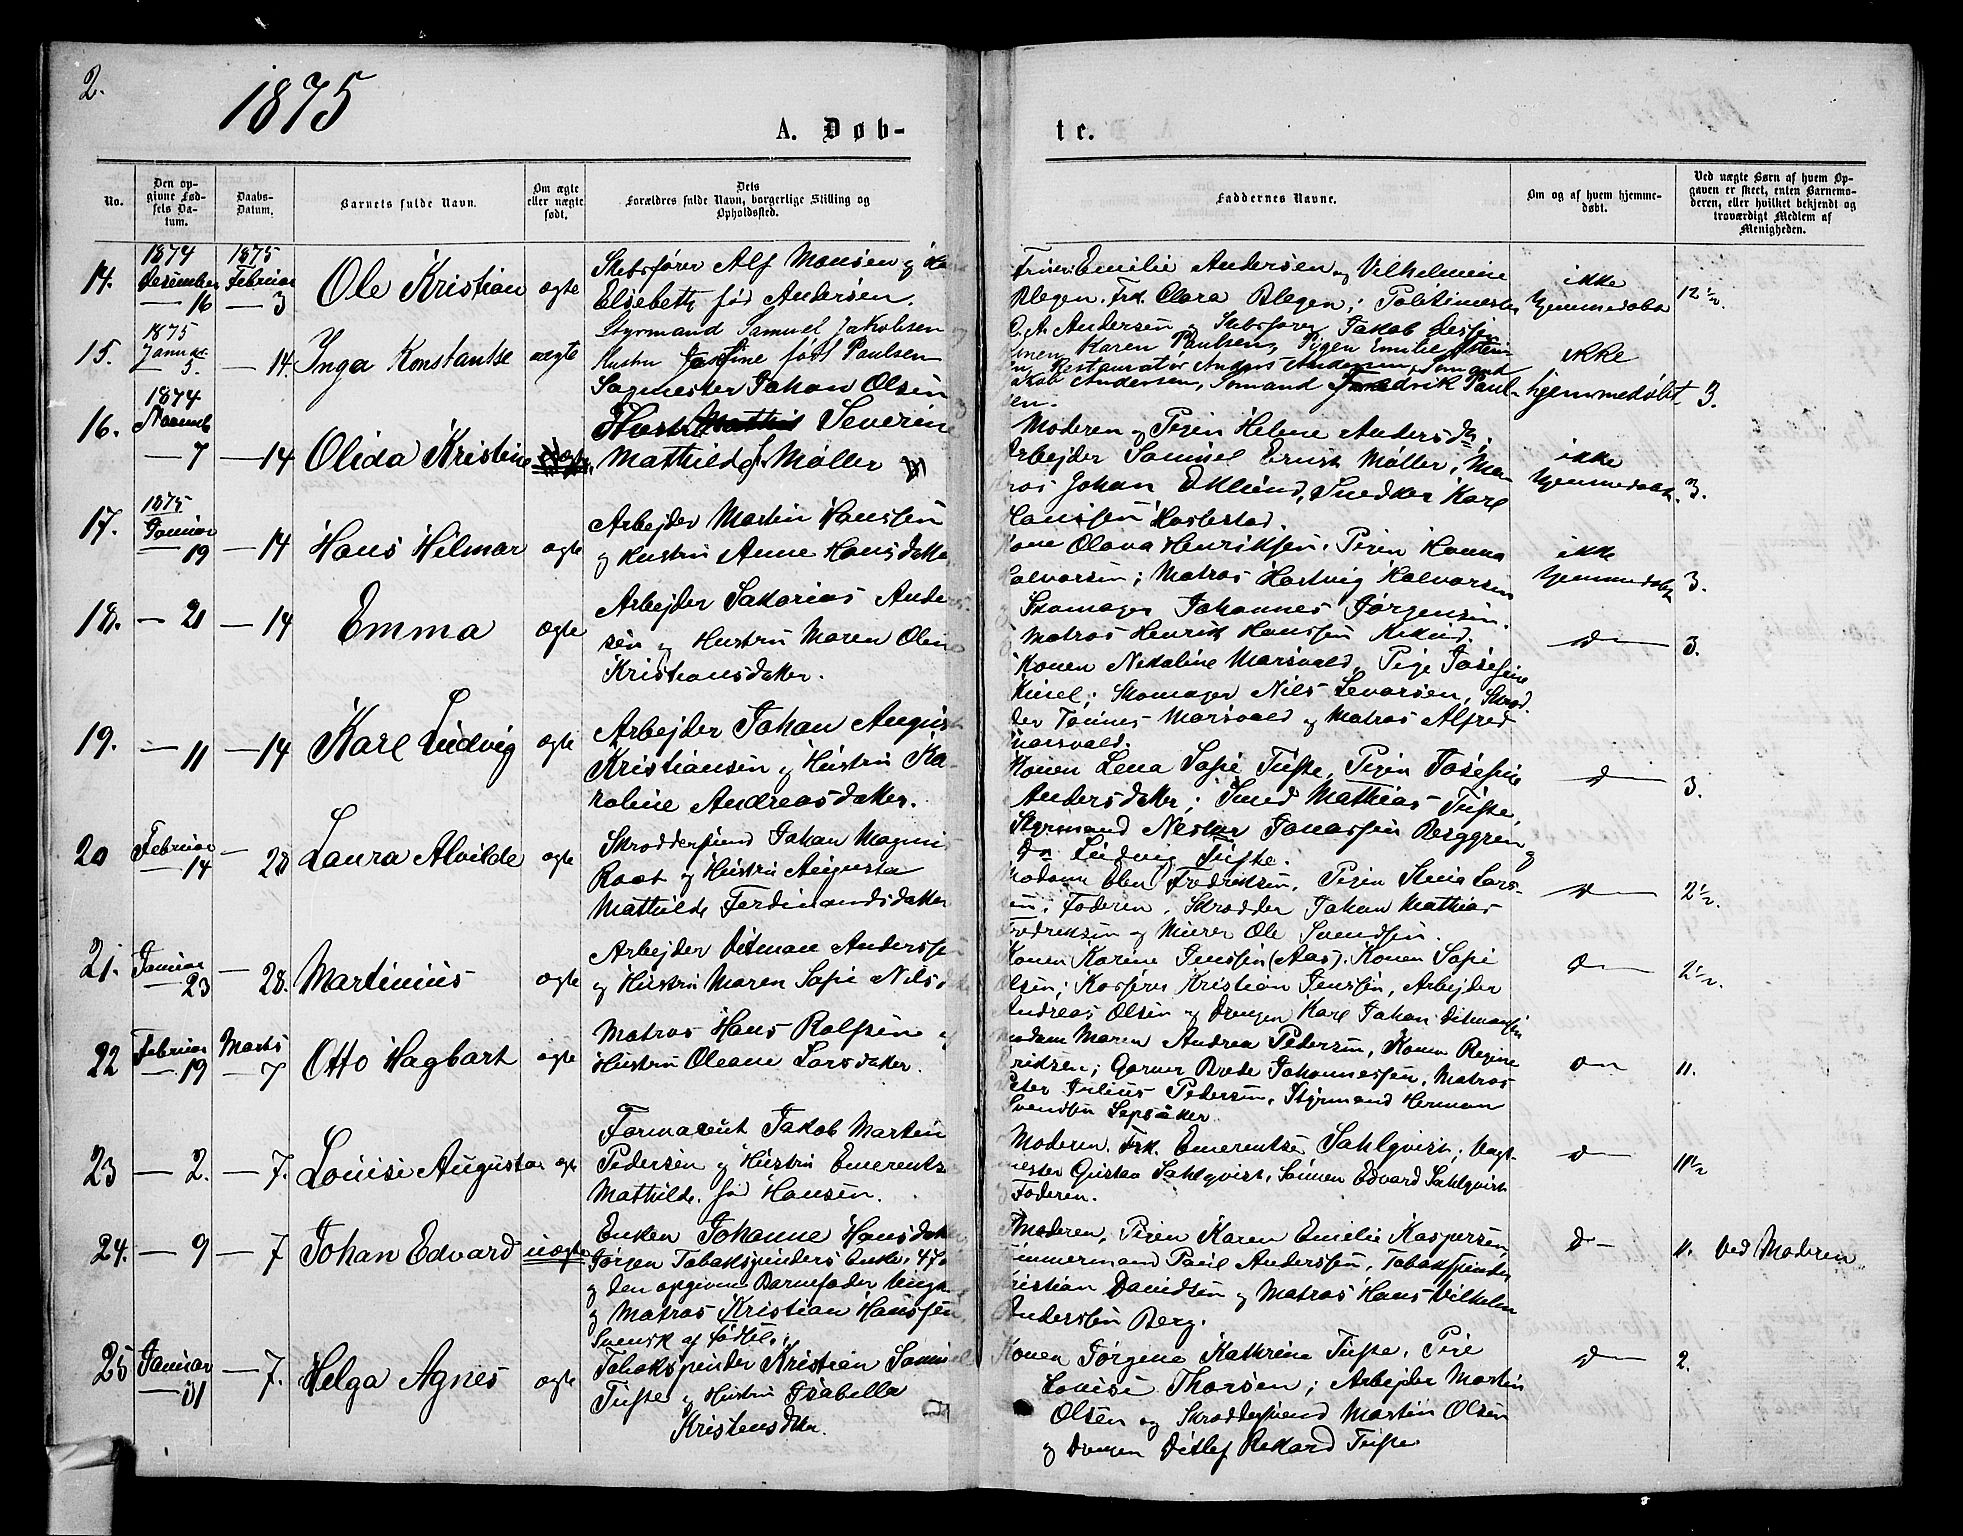 2.
1875
A. Døb-
te.
No.
Den op-
givne Fød-
sels Da-
tum.
Daabs-
Datum.
Barnets fulde Navn.
Om ægte
eller uægte
født.
Dets
Forældres fulde Navn, borgerlige Stilling og
Opholdssted.
Faddernes Navne.
Om og af hvem hjemme-
døbt.
Ved uægte Børn af hvem Op-
gaven er skeet, enten Barnemo-
deren, eller hvilket bekjendt og
troværdigt Medlem af
Menigheden.
14.
1874
Desember
— 16
1875
Februar
— 3
Ole Kristian
ægte
Skibsfører Alf Monsen og
Elsebeth fød Andersen.
Emilie Andersen og Vilhelmine
Blegen. Frk. Clara Blegen; Politimester
O. A. Andersen og Skibsfører Jakob
ikke
hjemmedøbt
12 ½
15.
1875
Januar
5.
— 14.
Inga Konstantse
ægte
Styrmand Samuel Jakobsen
Hustru Josfine født Paulsen
Karen Paulsen, Pigen Emilie
Restauratør Anders Andersen, Sømand
Andersen, Sømand Fredrik Paul-
sen.
ikke
hjemmedøbt
3.
16.
1874
Novemb
— 7
— 14
Olida Kristine
Sagmester Johan Olsen
Severine
Mathilde f. Møller
Moderen og Pigen Helene Andersd.;
Arbejder Samuel Ernst Møller, Ma-
tros Johan Eklund, Snedker Karl
Hanssen Hasletad.
ikke
hjemmedøbt.
3.
17.
1875
Januar
— 19
— 14
Hans Hilmar
ægte
Arbejder Martin Hanssen
og Hustru Anne Hansdatter
Kone Olava Henriksen, Pigen Hanna
Halvorsen; Matros Hartvig Halvorsen
Skomager Johannes Jørgensen.
ikke
hjemmedøbt
3.
18.
— 21
— 14
Emma
ægte
Arbejder Sakarias Anders-
sen og Hustru Maren Olea
Kristiansdatter.
Matros Henrik Hanssen
Konen Nikoline Marsvald, Pige Josefine
Skomager Nils Sevarsen, Skræd-
der Tønnes Marsvald og Matros Alfred
Marsvald.
d —
3.
19.
— 11
— 14
Karl Ludvig
ægte
Arbejder Johan August
Kristiansen og Hustru Ka-
roline Andreasdatter.
Konen Lena Sofie Tufte, Pigen Josefine
Andersdatter; Smed Mathias Tufte,
Styrmand Jonassen Berggren og
do Ludvig Tufte.
d —
3.
20
Februar
— 14
— 28
Laura Alvilde
ægte
Skræddersvend Johan Magnus
Roos og Hustru Augusta
Mathilde Ferdinandsdatter
Madam Elen Fredriksen, Pigen Stina Lars-
sen; Faderen, Skrædder Johan Mathias
Fredriksen og Murer Ole Svendsen.
d —
2 ½.
21.
Januar
— 23
— 28.
Martinius
ægte
Arbejder Ditman Anderssen
og Hustru Maren Sofie Nilsd
Konen Karine Jenssen (Aas), Konen Sofie
Olsen; Kasserer Kristian Jenssen, Arbejder
Andreas Olsen og Drengen Karl Johan Ditmansen
d —
2 ½.
22
Februar
— 19
Marts
— 7
Otto Hagbart
ægte
Matros Hans Rolfsen og
Hustru Oleane Larsdatter.
Madam Maren Andrea Pedersen, Konen Regine
Eriksen; Garver Brede Johannessen, Matros
Peter Julius Pedersen, Styrmand Herman
Svendsen Lepsåker.
d —
11.
23
— 2.
— 7.
Louise Augusta
ægte
Formarent Jakob Martin
Pedersen og Hustru Emerentse
Mathilde, fød Hansen.
Moderen, Frk. Emerentse Sahlqvist, Vagt-
mester Gustav Sahlqvist, Sønnen Edvard Sahlqvist
Faderen.
d —
11 ½
24.
— 9
— 7
Johan Edvard
uægte
Enken Johanne Hansdatter
Jørgen Tobakspinders Enke, 47
og den opgivne Barnefader Ungkarl
og Matros Kristian Hanssen,
Svensk af Fødsel.
Moderen, Pigen Karen Emilie Kaspersen,
Tømmermand Paul Anderssen, Tobakspinder
Kristian Davidsen og Matros Hans Vilhelm
Anderssen Berg.
d —
11.
Ved Moderen
25
Januar
— 31
— 7.
Helga Agnes
ægte
Tobakspinder Kristian Samuel
Tufte og Hustru Isabella
Kristensdtter.
Konen Jørgine Kathrine Tufte, Pige
Louise Thorsen; Arbejder Martin
Olsen og Skræddersvend Martin Olsen
og Drengen Ditlef Rikard Tufte
d —
2.